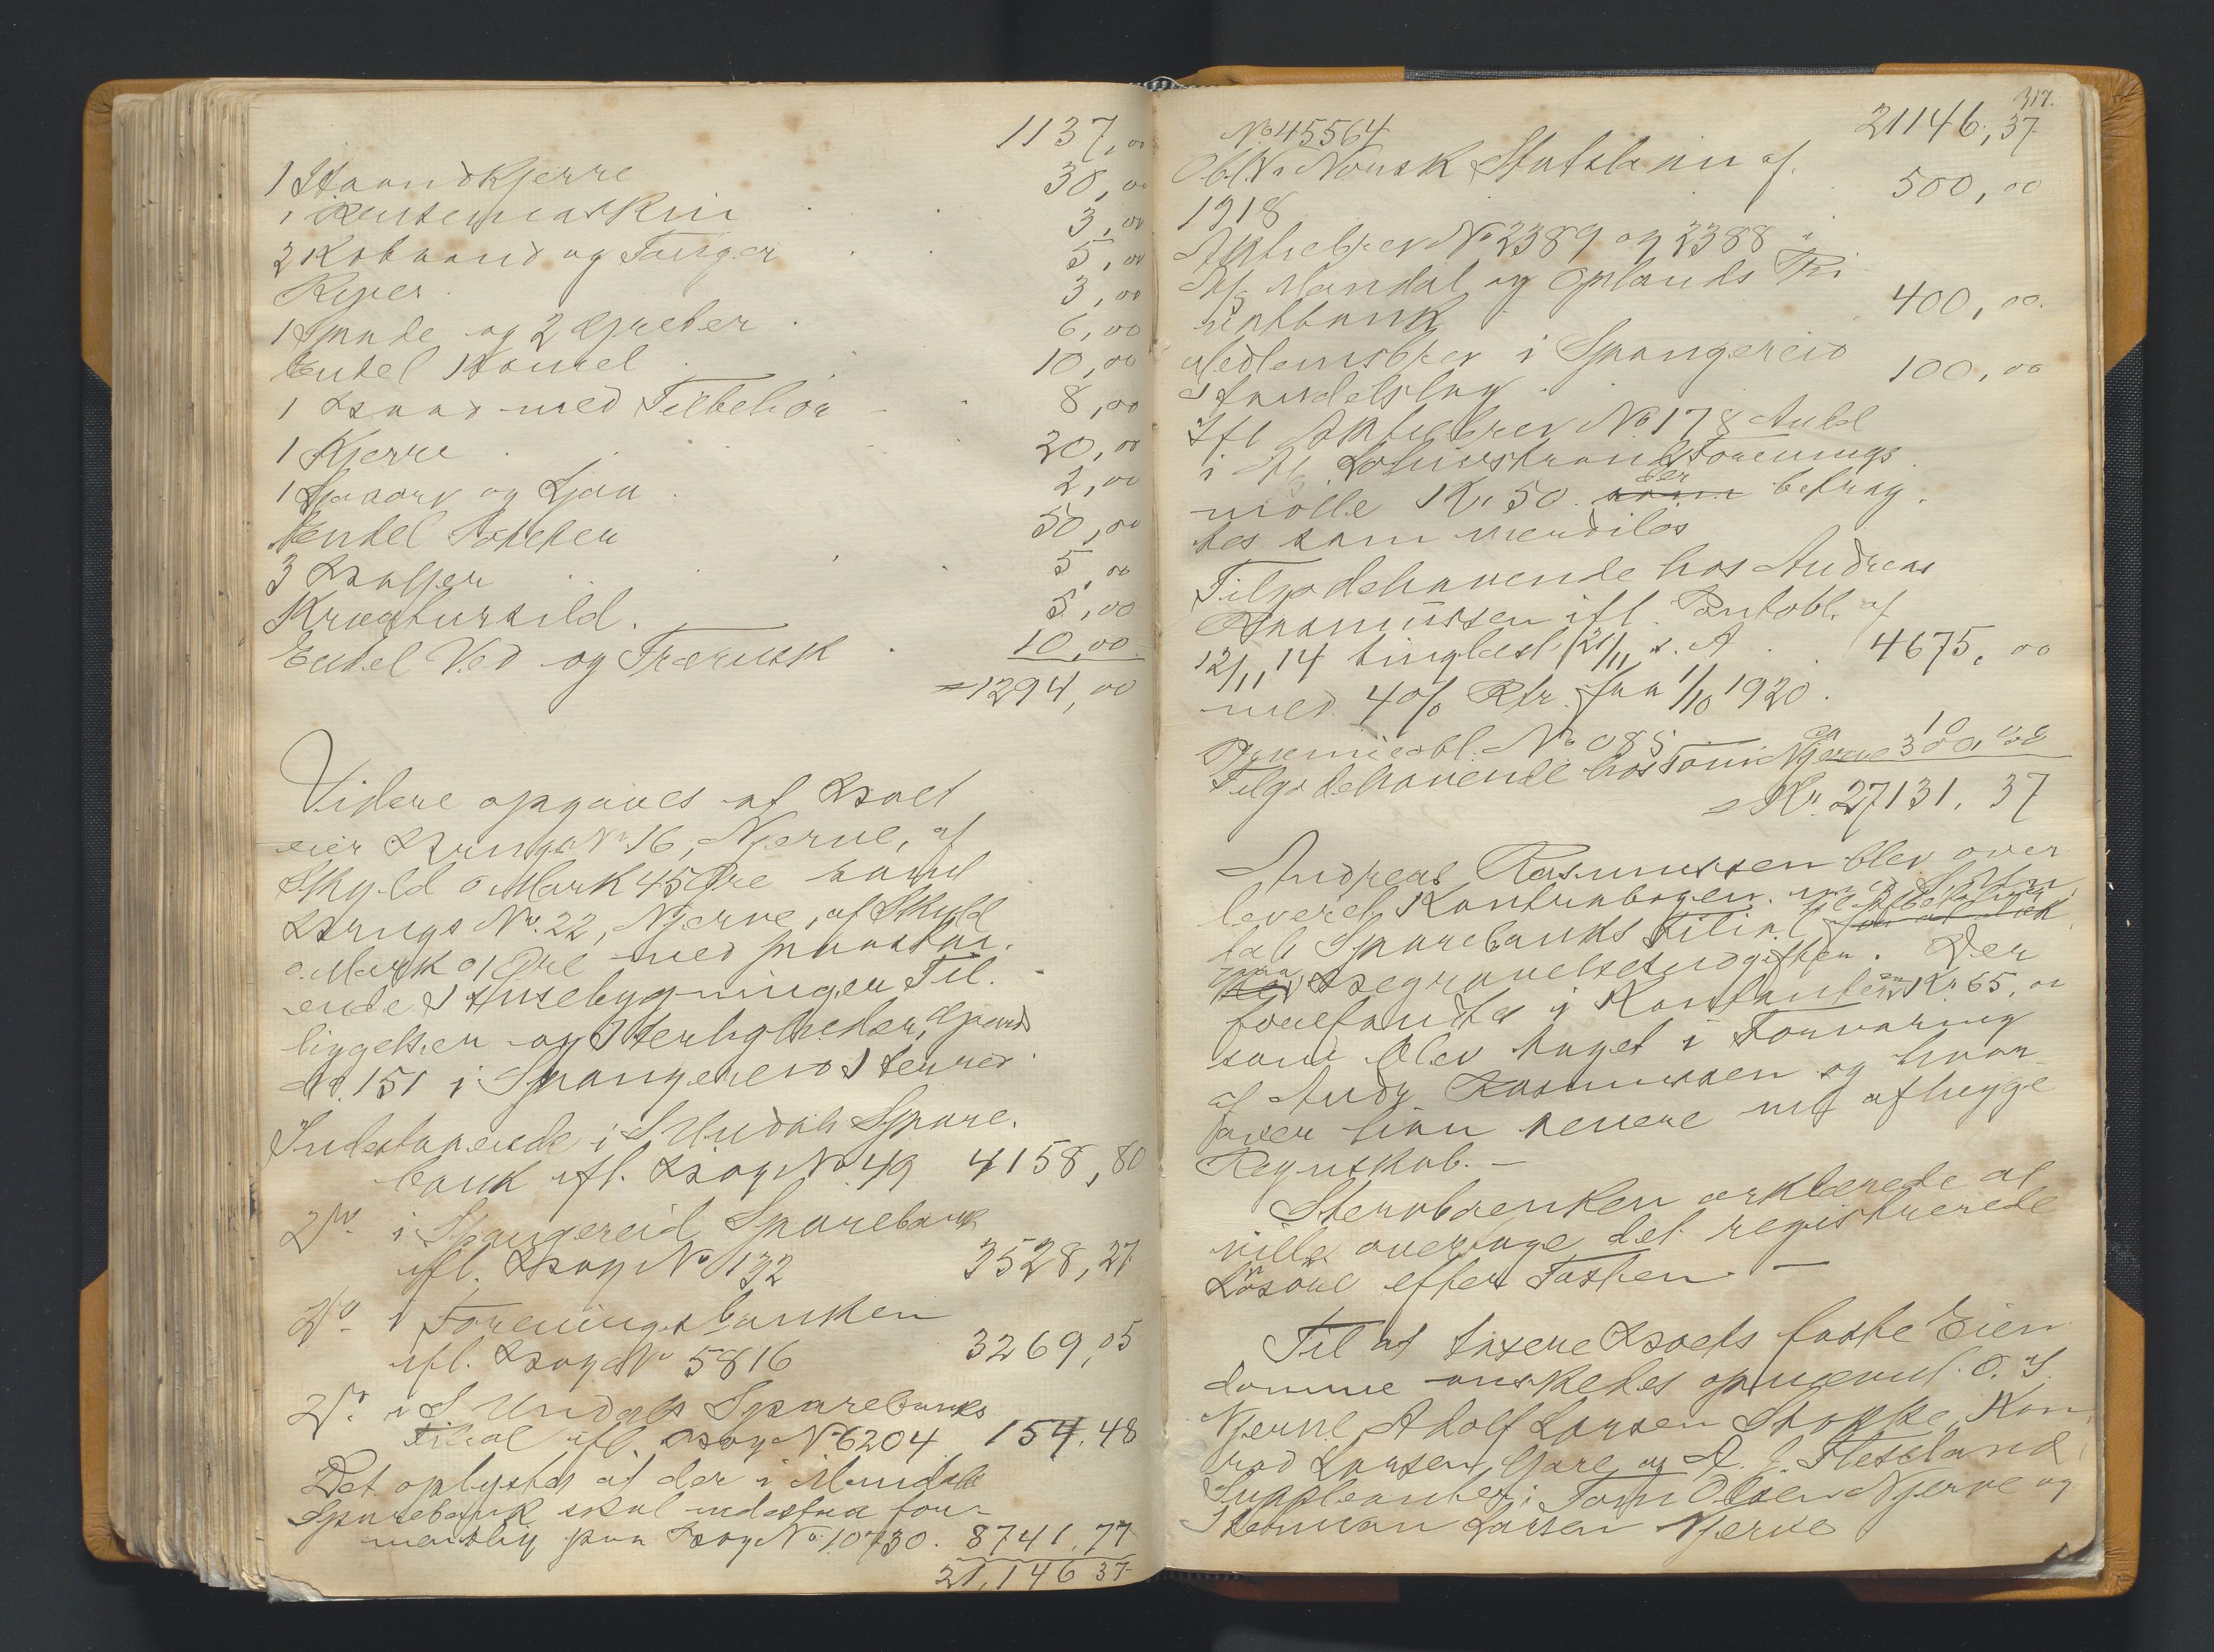 1137,00
1 Haandkjerre 30,00
1 Rensemaskin 3,00
2 Kobaand og Tønger 5,00
Kiper 3,00
1 Spade og 2 Greber 6,00
Endel Hamel 10,00
1 Baad med Tilbehør 8,00
1 Kjerre 20,00
1 Ljaaorv og Ljaa 2,00
Endel Poteter 50,00
3 Baljer 5,00
Kreatursild. 5,00
Endel Ved og Trærusk 10,00
=1294,00
Videre opgaves at Boet
eier Brugs No. 16, Njerve, af
Skyld 0 Mark 45 Øre samt
Brugs No. 22, Njerve, af Skyld
0 Mark 01 Øre med paastaa-
ende Husebygninger Til-
liggelser og Herligheder, Gaards
No. 151 i Spangereid Herred.
Indestaaende i S. Undals Spare-
bank ifl. Bog No 49 4158,80
Do. i Spangereid Sparebank
ifl. Bog No 132 3528,27
Do. i Foreningsbanken
ifl. Bog No 5816 3269,05
Do. i S. Undals Sparebanks
Filial ifl. Bog No 6204 1544.48
Det oplystes at der i Mandals
Sparebank skal indestaa for-
mentlig paa Bog No. 10730. 8741.77
21,146 37
317.
21146,37
No 45564
Obl. Norsk Statslaan af 500,00
1918
Aktiebrev No 2389 og 2388 i
A/S Mandal og Oplands Pri-
vatbank 400,00.
Medlemsbrev i Spangereid
Handelslag 100,00
Ifl Aktiebrev No 178 Anbl
i A/S Forenings
mølle Kr. 50. som der betrag-
tes som værdiløs
Tilgodehavende hos Andreas
Rasmussen ifl. Pantobl. af
12/11 14 tinglæst 21/11 s. A 4675,00
med 4 % Rtr. fra 1/10 1920.
Præmieobl. No 085 10
Tilgodehavende hos Tom Njerve ca 300,00
= Kr. 27131.37
Andreas Rasmussen blev over
leveret Kontrabogen med S. Un-
dals Sparebanks Filial til Bestridelse
paa Begravelsesudgifter. Der
forefandtes i Kontanter Kr. 65,00
som blev taget i Forvaring
af Andr. Rasmussen og hvor
over han senere vil aflægge
Regnskab. –
Stervboenken erklærede at
ville overtage det registrerede
Løsøre efter Taxten. –
Til at taxere Boets faste Eien
domme ønskedes opnævnt O. T.
Njerve, Adolf Larsen Stokke, Kon-
rad Larsen Gare og A. J. Fleseland
Suppleanter: Tom Olsen Njerve og
Herman Larsen Njerve